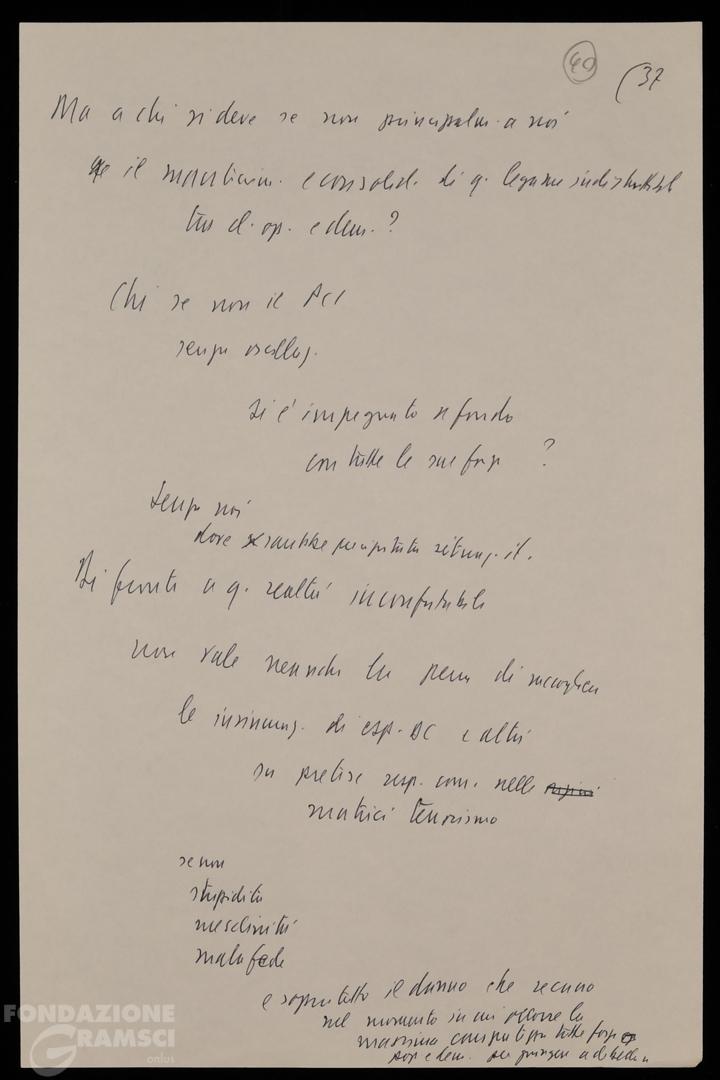 40
(37
Ma a chi si deve se non principalm. a noi
se il mantenim. e consolid. di q. legame indistruttibile
tra cl. op. e dem. ?
Chi se non il PCI
senza oscillaz.
si è impegnato a fondo
con tutte le sue forze ?
Senza noi
dove sarebbe precipitata situaz. it.
Di fronte a q. realtà inconfutabile
non vale neanche la pena di raccogliere
le insinuaz. di esp. DC e altri
su pretese resp. com. nelle
matrici terrorismo
se non
stupidità
meschinità
malafede
e soprattutto il danno che recano
nel momento in cui occorre la
massima tutte forze
pop. e dem. per
FONDAZIONE
GRAMSCI
onlus